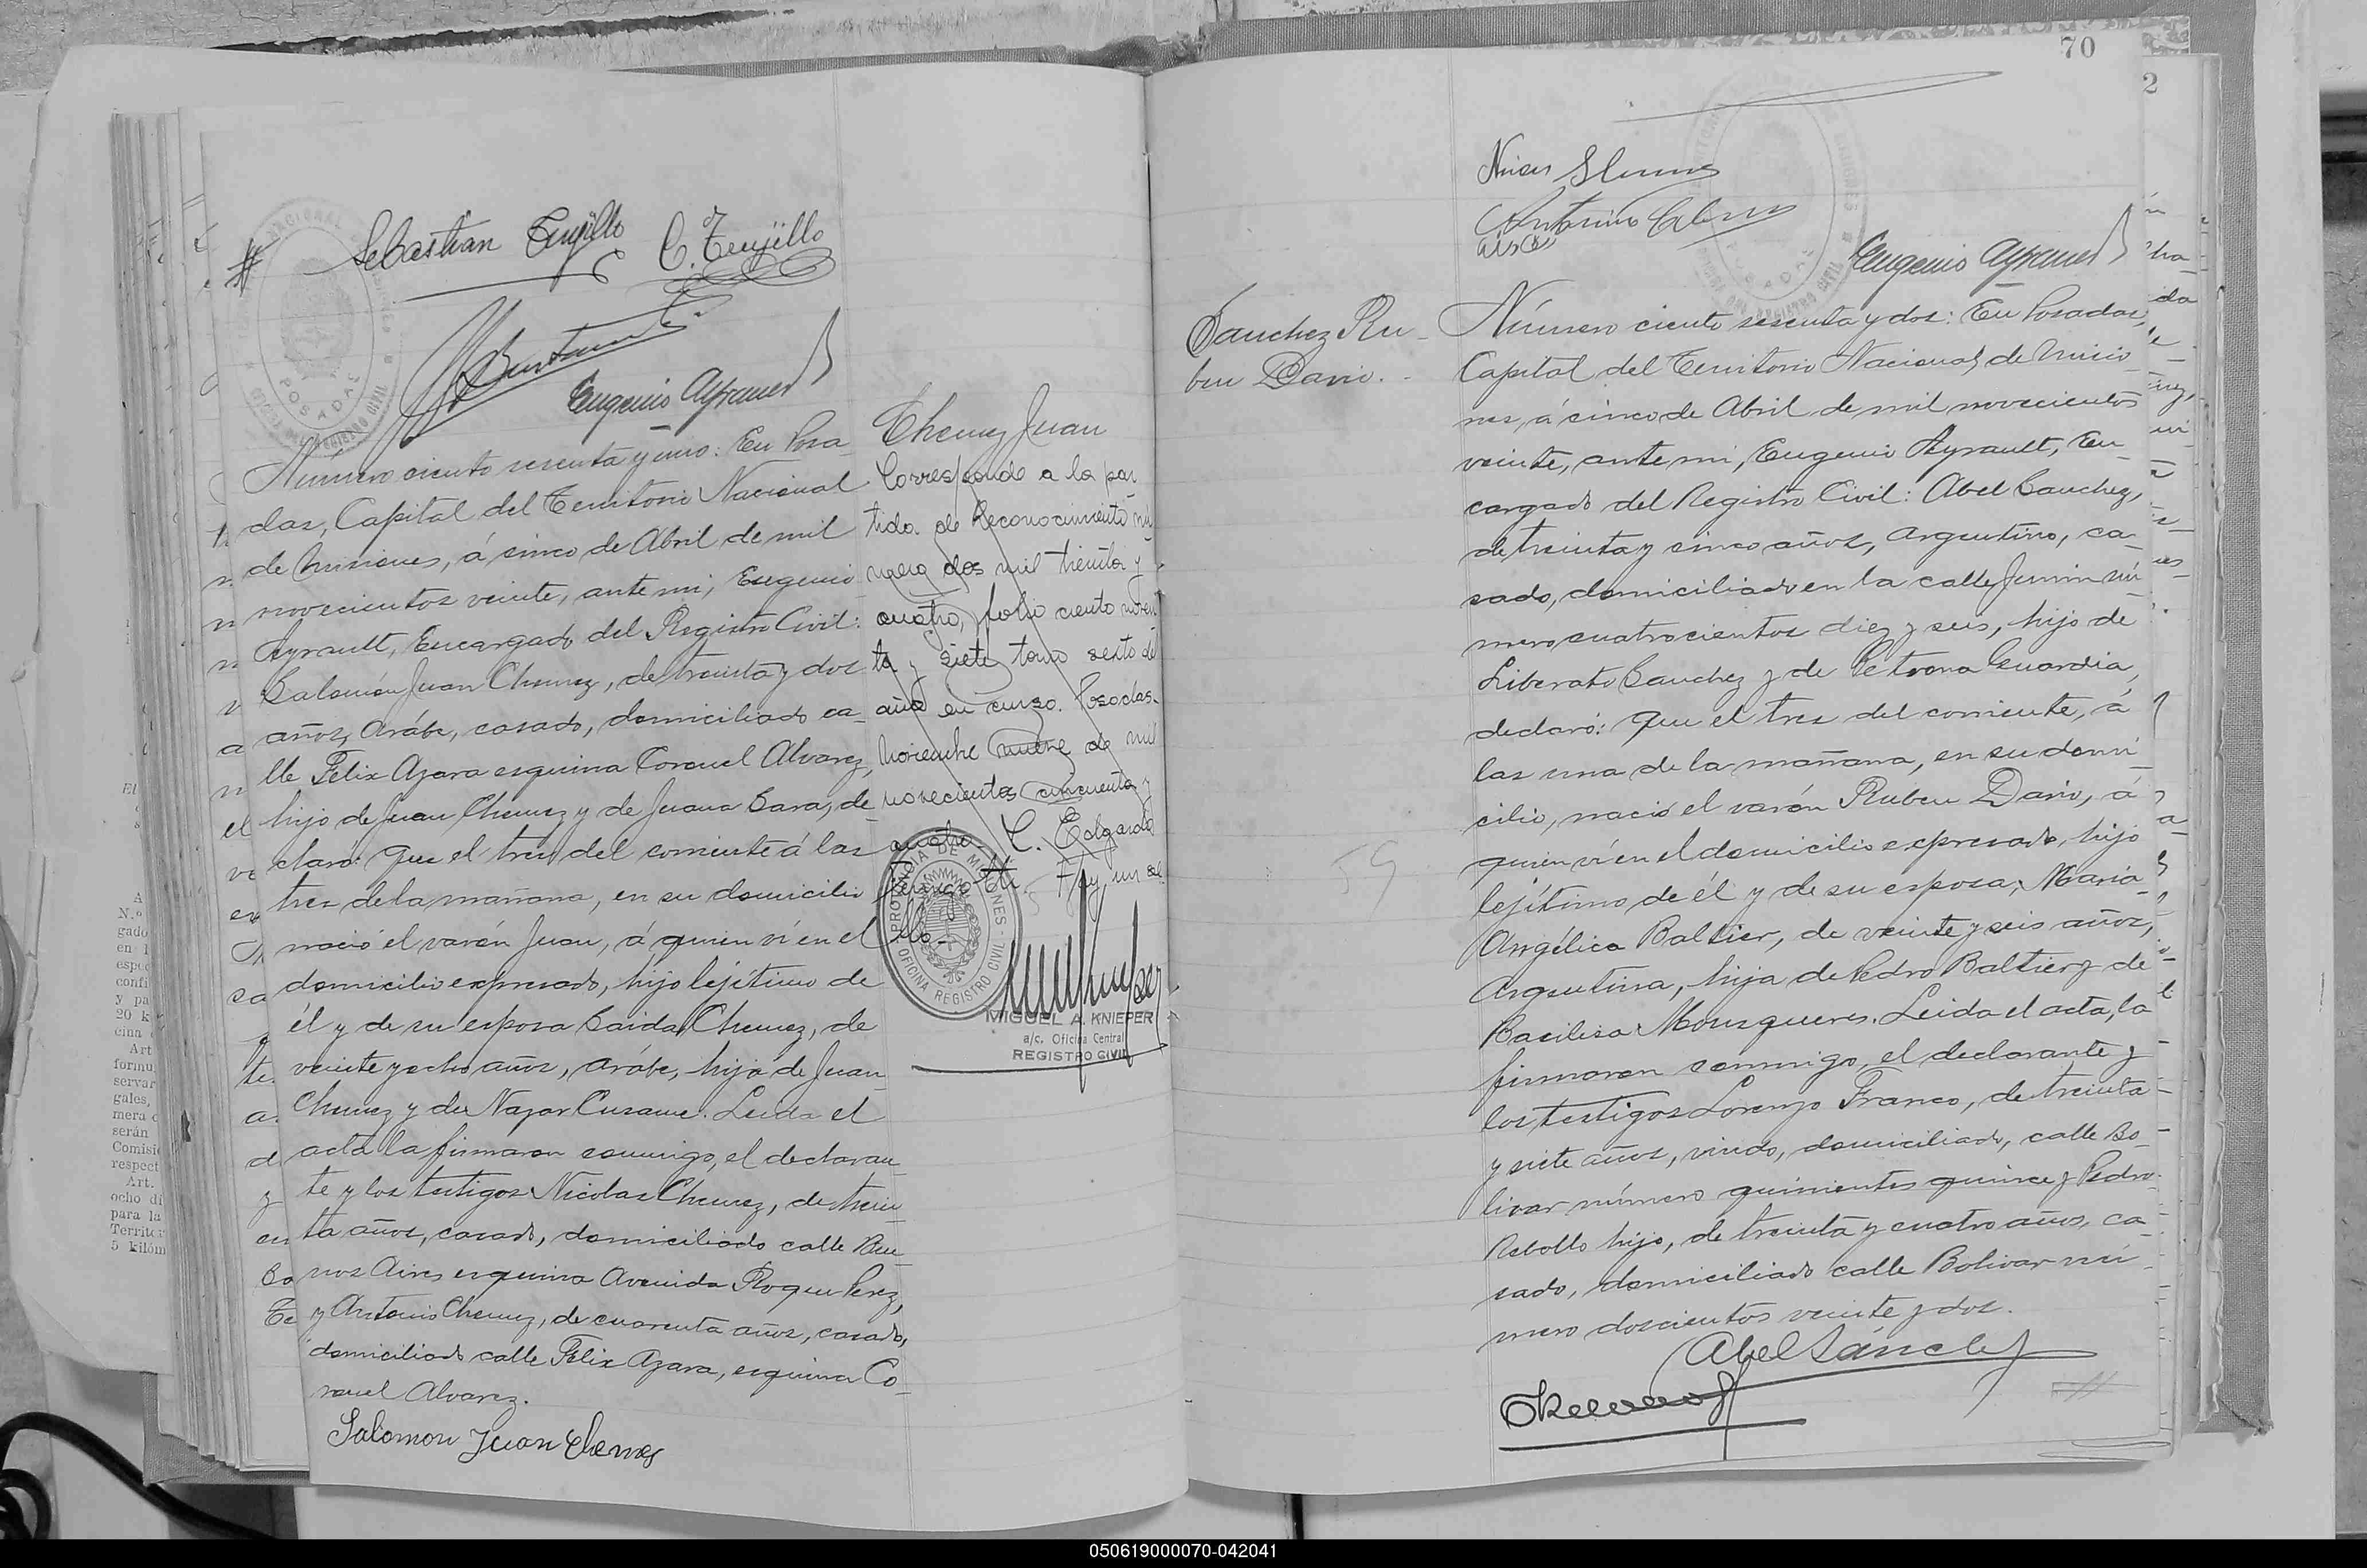 Sebastian Trujillo C. Trujillo
Eugenio Ayrault
Número ciento sesenta y uno: En Posa-
das, Capital del Territorio Nacional
de Misiones, á cinco de Abril de mil
novecientos veinte, ante mi, Eugenio
Ayrault, Encargado del Registro Civil:
Salomón Juan Chemez, de treinta y dos
años, Arábe, casado, domiciliado ca-
lle Felix Azara esquina Coronel Alvarez,
hijo de Juan Chemez y de Juana Sara, de-
claro: Que el tres del corriente á las
tres de la mañana, en su domicilio
nació el varón Juan, á quien ví en el
domicilio expresado, hijo lejítimo de
él y de su esposa Saida Chemez, de
veinte y ocho años, arábe, hija de Juan
Chemez y de Nazar Curame. Leida el
acta la firmaron conmigo, el declaran-
te y los testigos Nicolas Chemez, de trein-
ta años, casado, domiciliado calle Bue-
nos Aires esquina Avenida Roque Perez,
y Antonio Chemez, de cuarenta años, casado,
domiciliado calle Felix Azara, esquina Co-
ronel Alvarez.
Salomon Juan Chemes
Chemez Juan
Corresponde a la par-
tida de Reconocimiento nú-
mero dos mil treinta y
cuatro, folio ciento noven-
ta y siete tomo sexto del
año en curso. Posadas.
Noviembre nueve de mil
novecientos cincuenta y
cuatro. C. Edgardo
Hay un se-
llo.-
PROVINCIA DE MISIONES
OFICINA REGISTRO CIVIL
MIGUEL A. KNIEPER
a/c. Oficina Central
REGISTRO CIVIL
POSADAS
70
2
Antonio
Eugenio Ayrault
Sanchez Ru-
ben Dario.-
Número ciento sesenta y dos: En Posadas,
Capital del Territorio Nacional de Misio-
nes, á cinco de Abril de mil novecientos
veinte, ante mi, Eugenio Ayrault, En-
cargado del Registro Civil: Abel Sanchez,
de treinta y cinco años, Argentino, ca-
sado, domiciliado en la calle Junin nú-
mero cuatrocientos diez y seis, hijo de
Liberato Sanchez y de Petrona Guardia,
declaró: Que el tres del corriente, á
las una de la mañana, en su domi-
cilio, nació el varón Ruben Dario, á
quien ví en el domicilio expresado, hijo
lejítimo de él y de su esposa, Maria
Angélica Baltier, de veinte y seis años,
Argentina, hija de Pedro Baltier y de
Basilisa Mousqueres. Leida el acta, la
firmaron conmigo, el declarante y
los testigos Lorenzo Franco, de treinta
y siete años, viudo, domiciliado, calle Bo-
livar número quinientos quince y Pedro
Rebollo hijo, de treinta y cuatro años, ca-
sado, domiciliado calle Bolivar nú-
mero doscientos veinte y dos.
Abel Sánchez
59
050619000070-042041